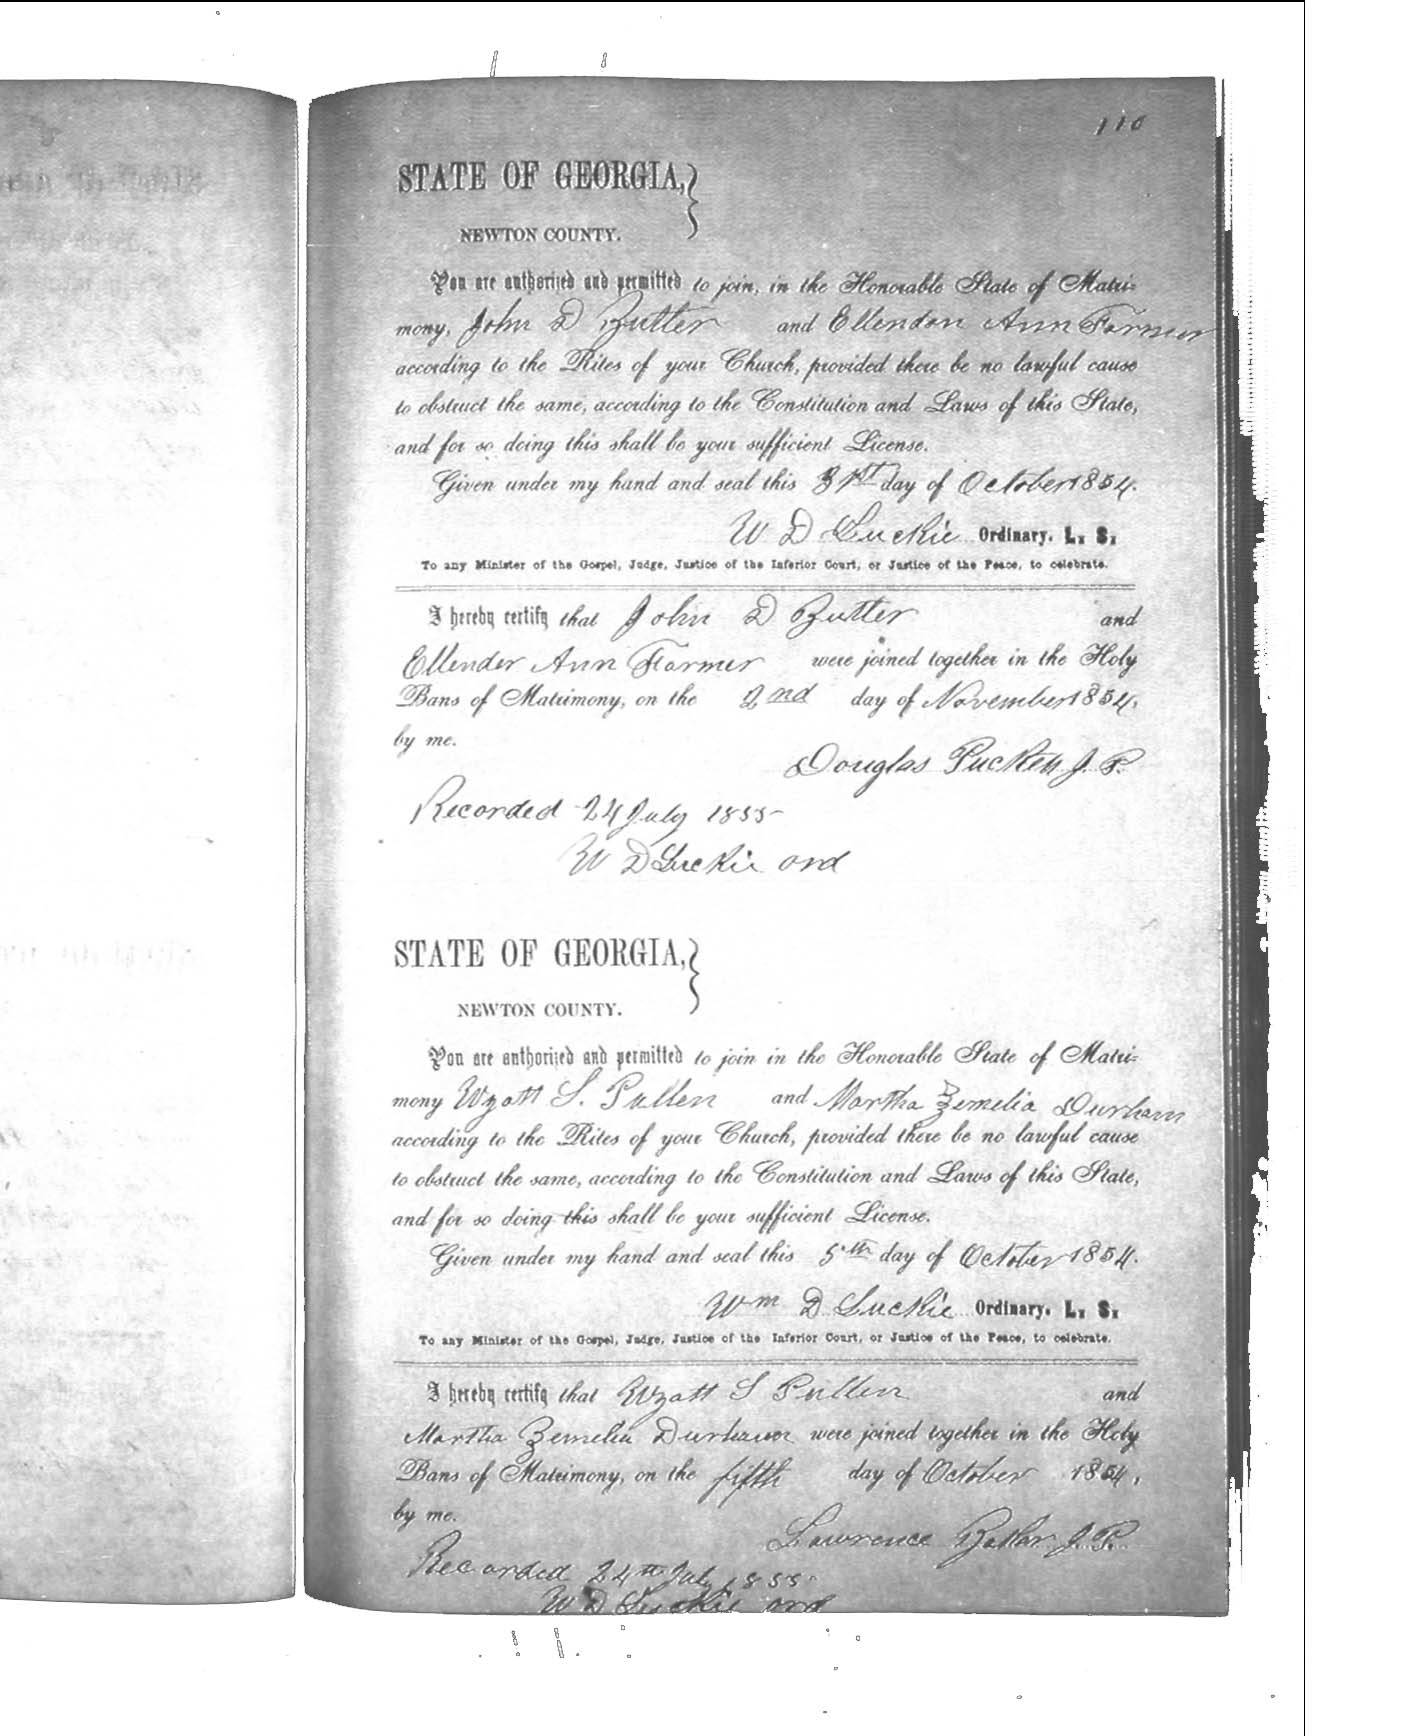 110
STATE OF GEORGIA,
NEWTON COUNTY.
You are authorized and permitted to join, in the Honorable State of Matri-
mony, John D Butler and Ellendon Ann Farmer
according to the Rites of your Church, provided there be no lawful cause
to obstruct the same, according to the Constitution and Laws of this State,
and for so doing this shall be your sufficient License.
Given under my hand and seal this 31st day of October 1854.
W D Luckie Ordinary. L. S.
To any Minister of the Gospel, Judge, Justice of the Inferior Court, or Justice of the Peace, to celebrate.
I hereby certify that John D Butler and
Ellender Ann Farmer were joined together in the Holy
Bans of Matrimony, on the 2nd day of November 1854,
by me.
Douglas J. P.
Recorded 24 July 1855
W D Luckie ord
STATE OF GEORGIA,
NEWTON COUNTY.
You are authorized and permitted to join in the Honorable State of Matri-
mony Wyatt S. Pullen and Martha Zemelia Durham
according to the Rites of your Church, provided there be no lawful cause
to obstruct the same, according to the Constitution and Laws of this State,
and for so doing this shall be your sufficient License.
Given under my hand and seal this 5th day of October 1854.
Wm D Luckie Ordinary. L. S.
To any Minister of the Gospel, Judge, Justice of the Inferior Court, or Justice of the Peace, to celebrate.
I hereby certify that Wyatt S Pullen and
Martha Zemelia Durham were joined together in the Holy
Bans of Matrimony, on the fifth day of October 1854,
by me.
Lawrence Baker J. P.
Recorded 24th July 1855
W D Luckie ord